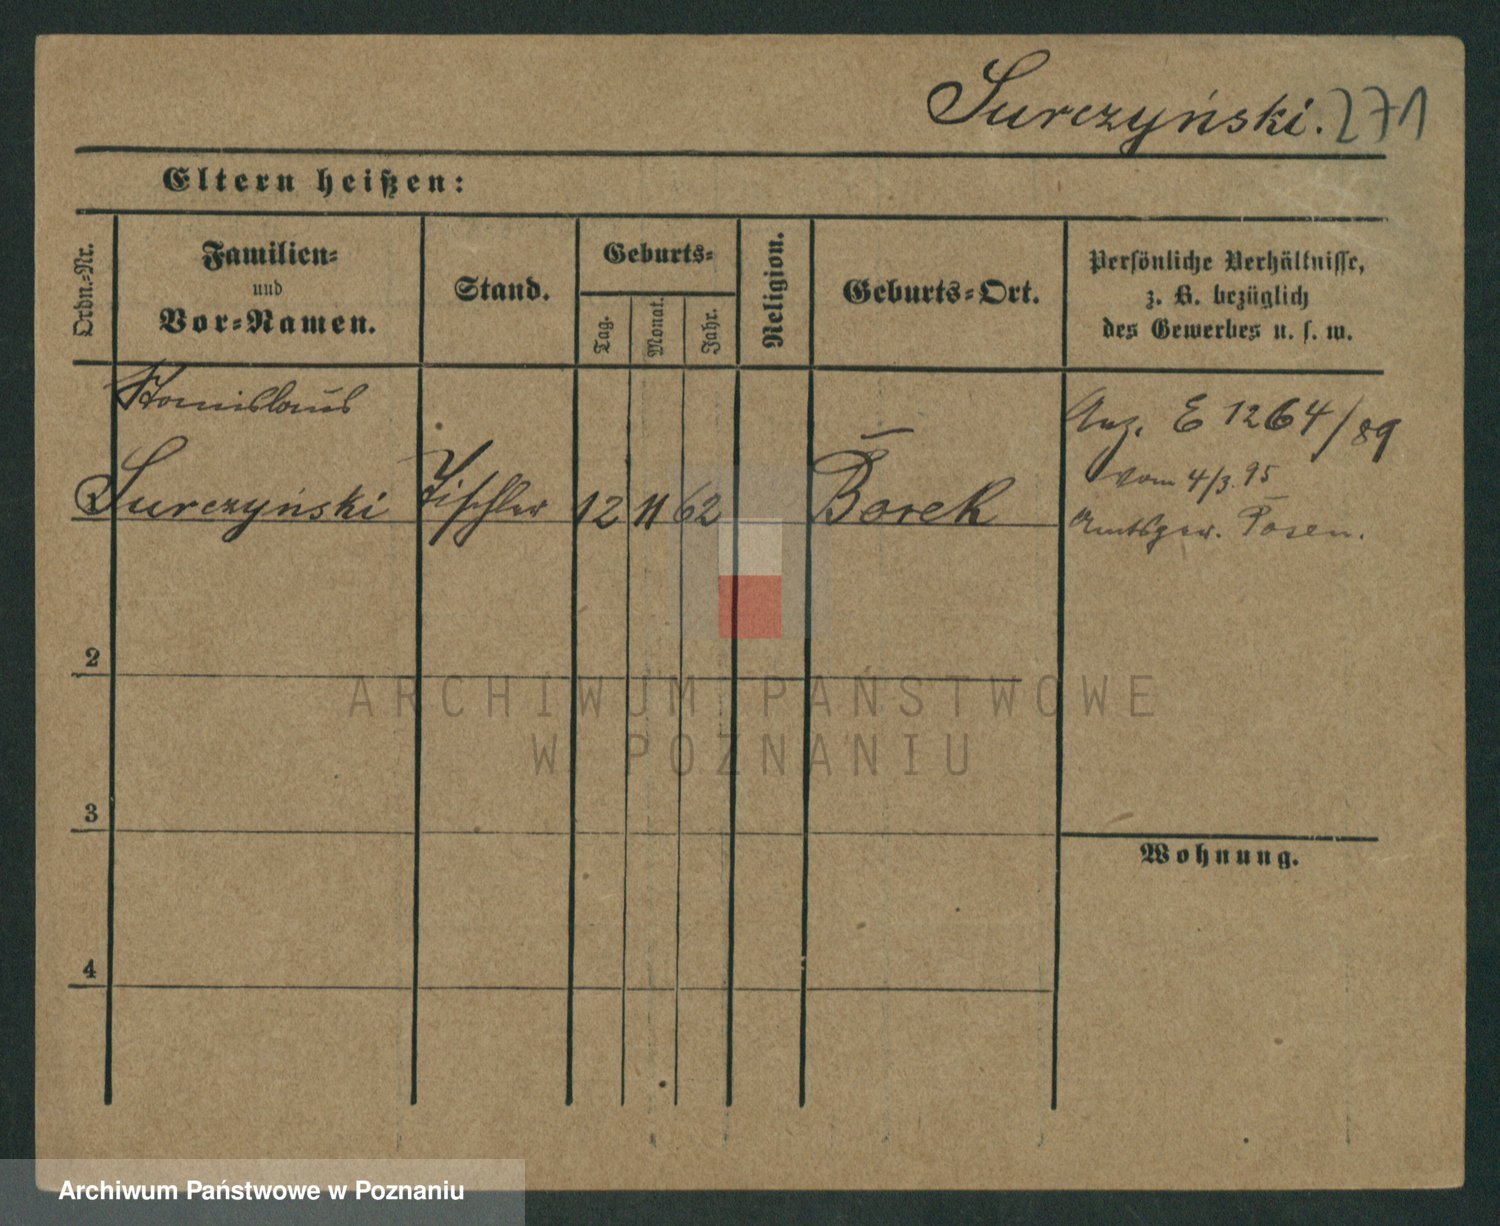 Surczyński. 271
Eltern heißen:
Ordn.-Nr.
Familien-
und
Vor-Namen.
Stand.
Geburts-
Tag.
Monat.
Jahr.
Religion.
Geburts-Ort.
Persönliche Verhältnisse,
z. B. bezüglich
des Gewerbes u. s. w.
Stanislaus
Surczyński Tischler 12 11 62 Borek
E 1264/89
vom 4/3. 95
Amtsger. Posen.
2
3
Wohnung.
4
ARCHIWUM PAŃSTWOWE
W POZNANIU
Archiwum Państwowe w Poznaniu